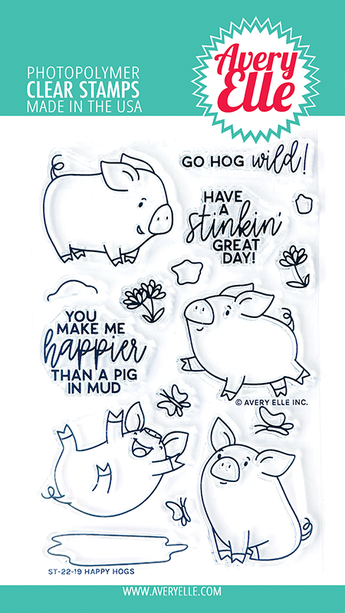 PHOTOPOLYMER
CLEAR STAMPS
MADE IN THE USA
Avery
Elle
GO HOG wild!
HAVE
A
stinkin'
GREAT
DAY!
YOU
MAKE ME
happier
THAN A PIG
IN MUD
© AVERY ELLE INC.
ST-22-19 HAPPY HOGS
WWW.AVERYELLE.COM